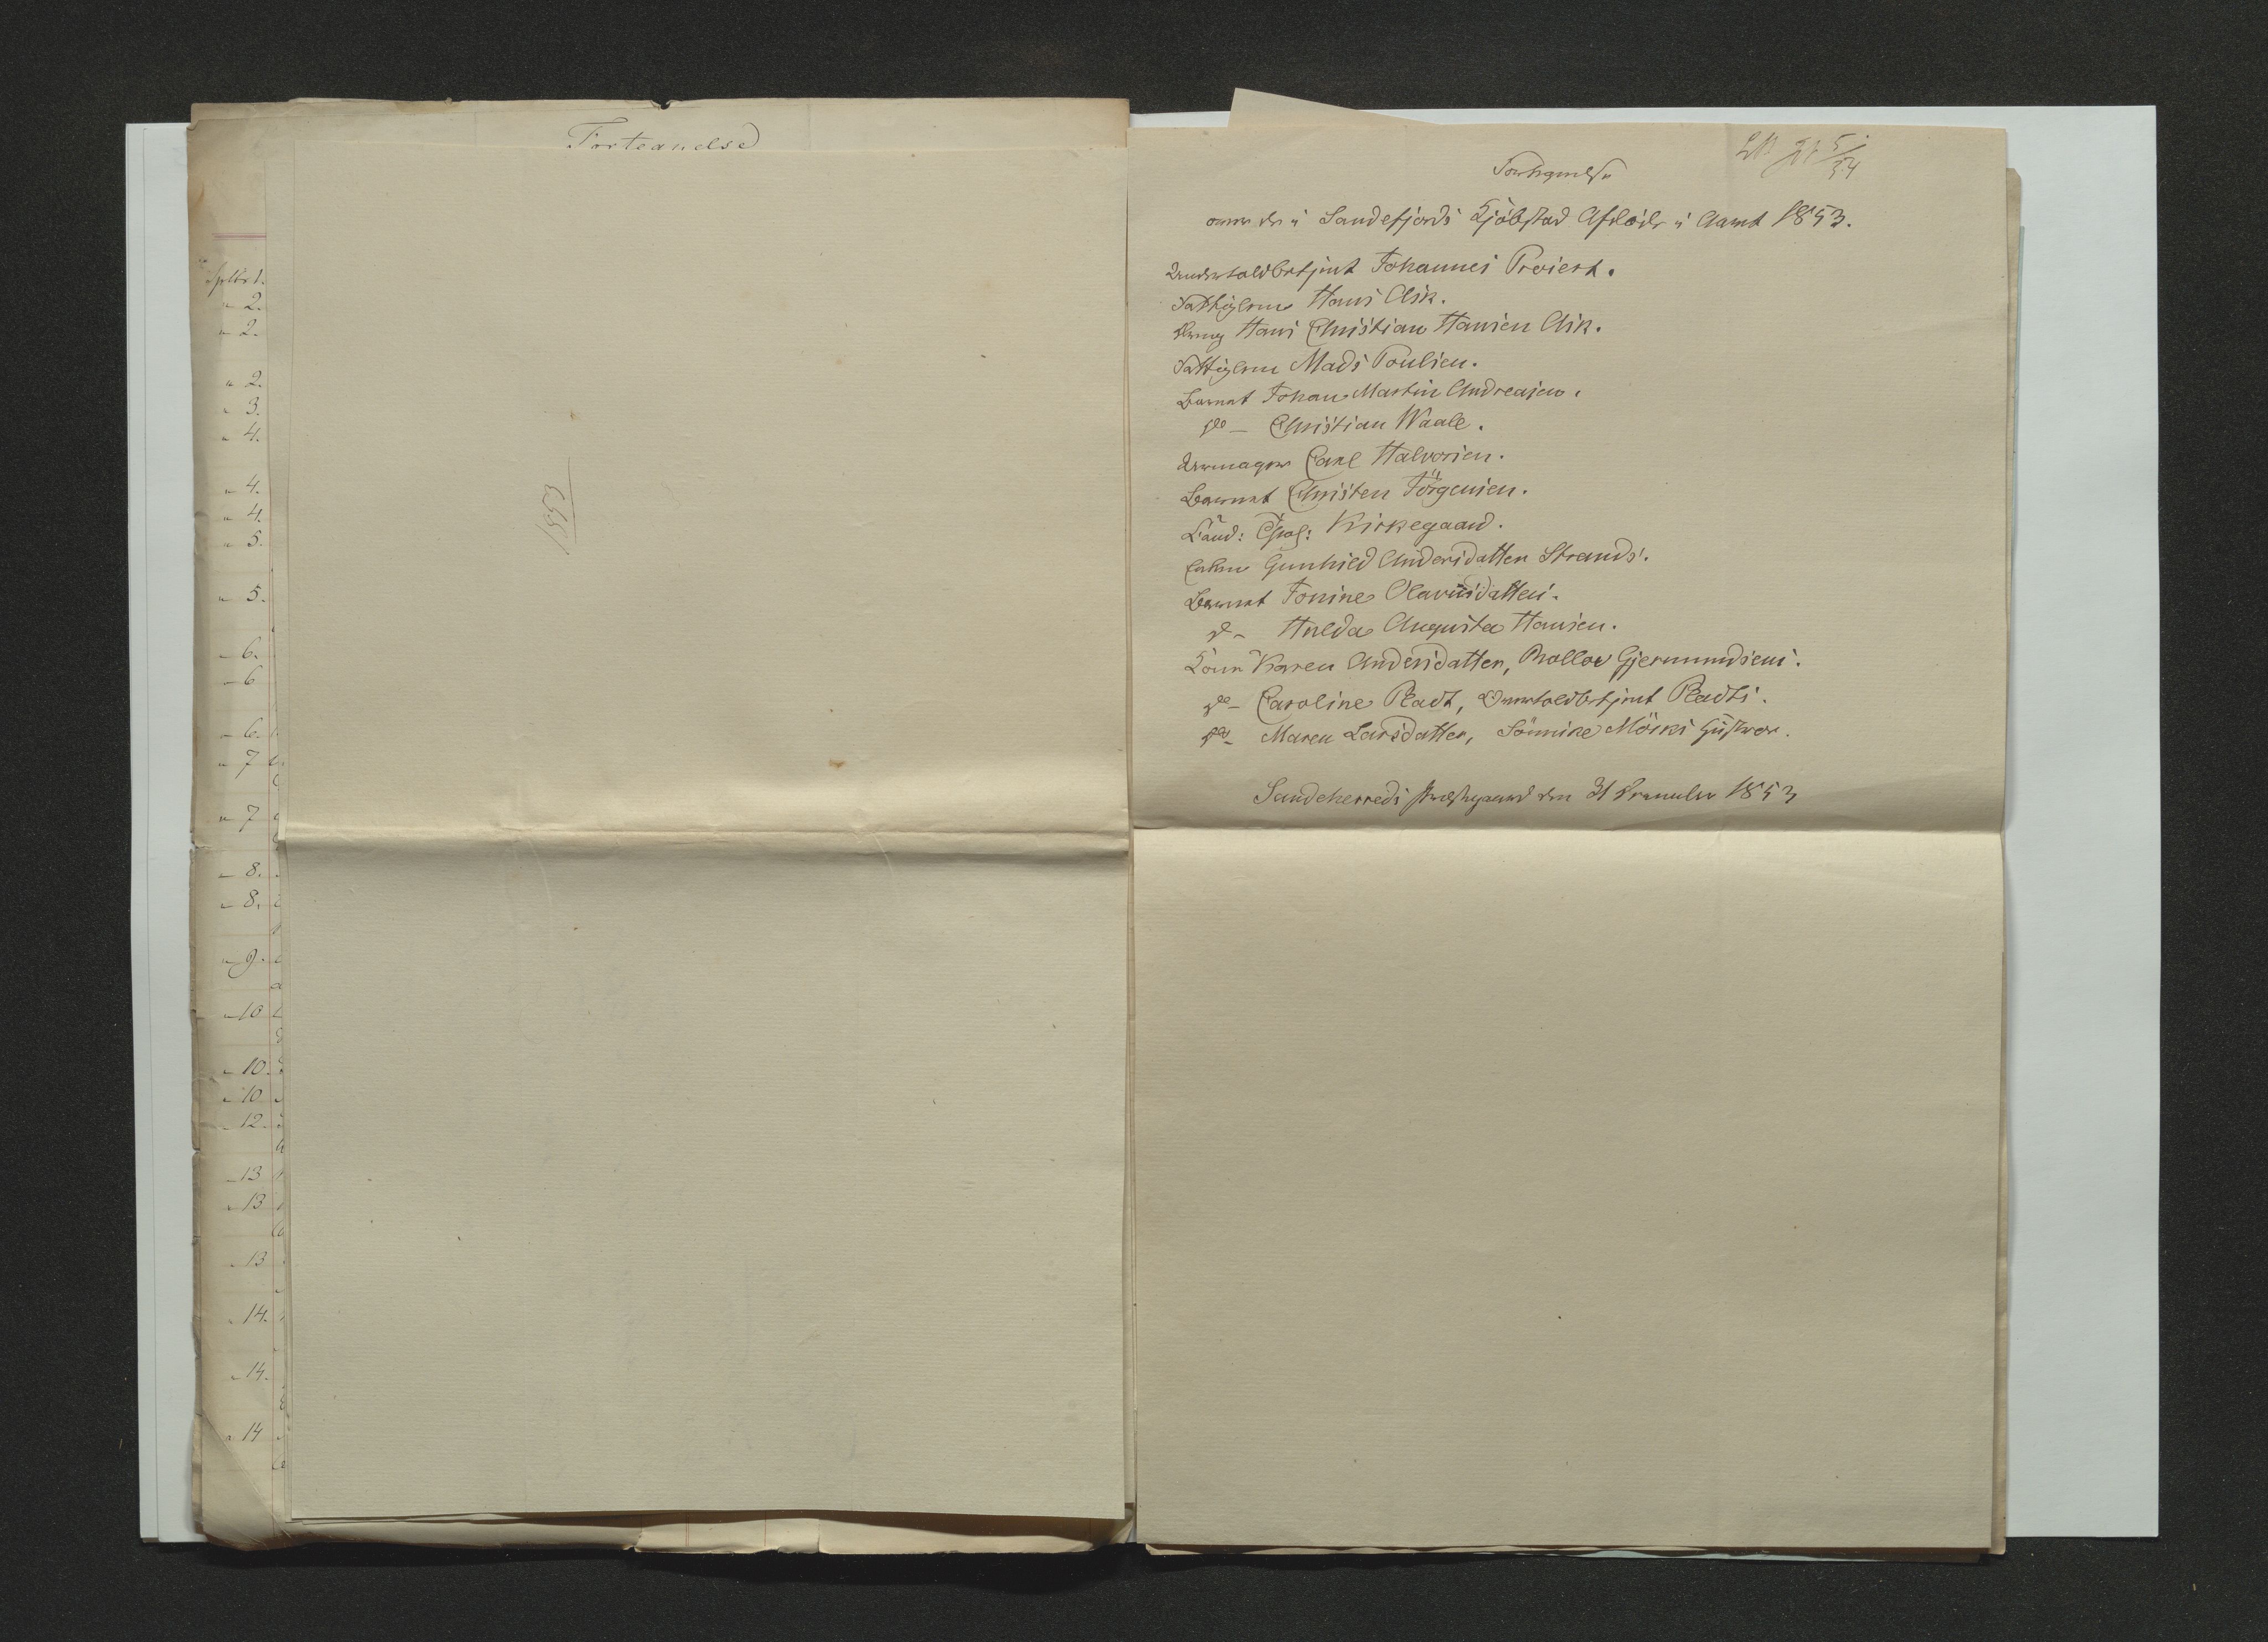 Fortegnelse
Sptbr 1.
" 2.
" 2.
" 2.
" 3.
" 4.
" 4.
" 4.
" 5.
" 5.
" 6.
" 6
" 6.
" 7
" 7
" 8.
" 8.
" 9.
" 10
" 10.
" 10
" 12.
" 13
" 13
" 13
" 14.
" 14.
" 14
1853
5/1 54
Fortegnelse
over de i Sandefjords Kjöbstad Afdöde i Aaret 1853.
Undertoldbetjent Johannes Proiert.
Fattiglem Hans Ask.
Dreng Hans Christian Hansen Ask.
Fattiglem Mads Poulsen.
Barnet Johan Martin Andreasen.
do – Christian Waale.
Carl Halvorsen.
Barnet Christen Jörgensen.
Cand: Theol: Kirkegaard.
Enken Gunhild Andersdatter Strands.
Barnet Josine Olavusdatter.
d – Hulda Augusta Hansen.
Kone Karen Andersdatter, Rollov Gjermundsens.
do – Caroline Radt, Overtoldbetjent Radts.
do – Maren Larsdatter, Sönnike Mörks Hustroe.
Sandeherreds Præstegaard den 31 December 1853